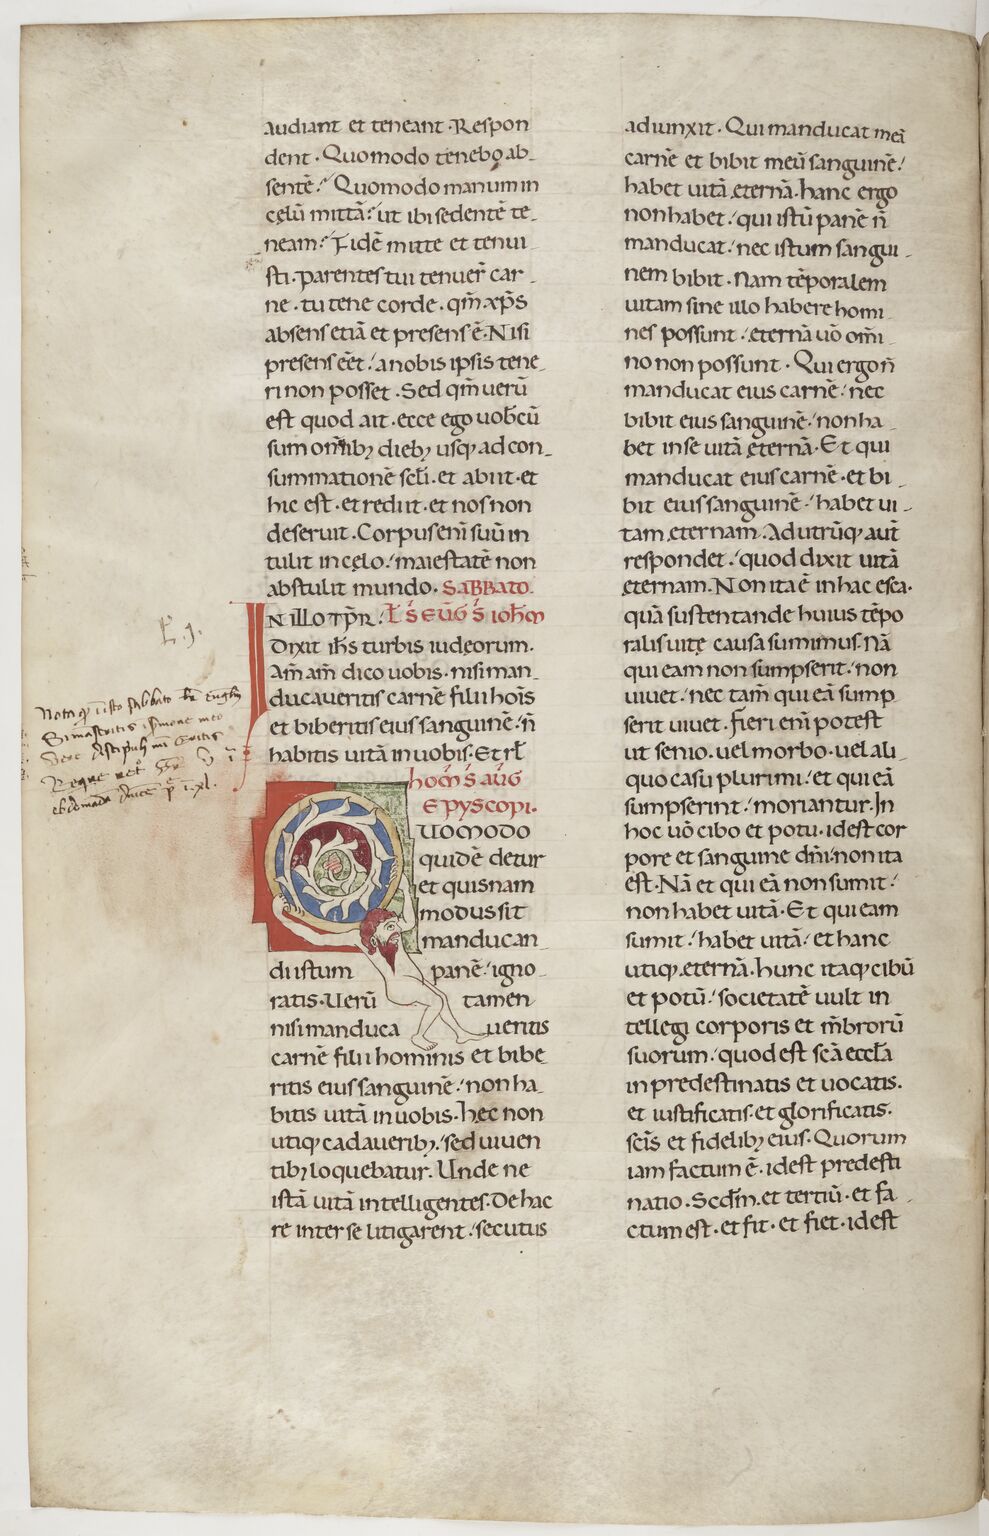 audiant et teneant · Respon
dent · Quomodo tenebo ab-
sentē? Quomodo manum in
cęlū mittā? ut ibi sedentē te-
neam? Fidē mitte et tenui-
sti · parentes tui tenuer̄ car-
ne · tu tene corde · qm̄ xp̄s
absens etiā et presens ē · Nisi
presens eēt / a nobis ipsis tene-
ri non posset · Sed qm̄ uerū
est quod ait · ecce ego uob̄cū
sum om̄ibꝫ diebꝫ usqꝫ ad con-
summationē sc̄li · et abiit · et
hic est · et rediit · et nos non
deseruit · Corpus eni suū in
tulit in cęlo / maiestatē non
abstulit mundo · SABBATO
IN ILLO TP̄R · L̄ S̄ EŪG S̄ IOH̄M
Dixit ih̄s turbis iudeorum ·
Am̄ am̄ dico uobis · nisi man-
ducaueritis carnē filii hoīs
et biberitis eius sanguinē · n̄
habitis uitā in uobis · Et rł
hom̄ s̄ aūg
Epyscopi ·
QUOMODO
quidē detur
et quisnam
modus sit
manducan-
di istum panē / igno-
ratis · Uerū tamen
nisi manduca ueritis
carnē filii hominis et bibe
ritis eius sanguinē / non ha-
bitis uitā in uobis · hęc non
utiqꝫ cadaueribꝫ / sed uiuen
tibꝫ loquebatur · Unde ne
istā uitā intelligentes · De hac
re inter se litigarent / secutus
adiunxit · Qui manducat meā
carnē et bibit meū sanguinē /
habet uitā ęternā · hanc ergo
non habet / qui istū panē n̄
manducat / nec istum sangui-
nem bibit · Nam tēporalem
uitam sine illo habere homi-
nes possunt / ęternā uō om̄i-
no non possunt · Qui ergo n̄
manducat eius carnē / nec
bibit eius sanguinē / non ha-
bet in se uitā ęternā · Et qui
manducat eius carnē · et bi-
bit eius sanguinē / habet ui-
tam ęternam · Ad utrūqꝫ aut̄
respondet / quod dixit uitā
ęternam · Non ita ē in hac esca ·
quā sustentande huius tēpo
ralis uitę causa sumimus · Nā
qui eam non sumpserit / non
uiuet / nec tam̄ qui eā sump-
serit uiuet · Fieri eni potest
ut senio · uel morbo · uel ali
quo casu plurimi / et qui eā
sumpserint / moriantur · In
hoc uō cibo et potu · id est cor
pore et sanguine dn̄i · non ita
est · Nā et qui eā non sumit /
non habet uitā · Et qui eam
sumit / habet uitā / et hanc
utiqꝫ ęternā · hunc itaqꝫ cibū
et potū / societatē uult in
tellegi corporis et mēbrorū
suorum / quod est scā eccl̄a
in predestinatis et uocatis ·
et iustificatis · et glorificatis ·
scīs et fidelibꝫ eius · Quorum
iam factum ē · id est predesti
natio · Scdm̄ · et tertiū · et fa-
ctum est · et fit · et fiet · id est
Nota qꝫ isto sabbato
Si manseritis sermone meo
Vere discipuli mei eritis
ebdomada